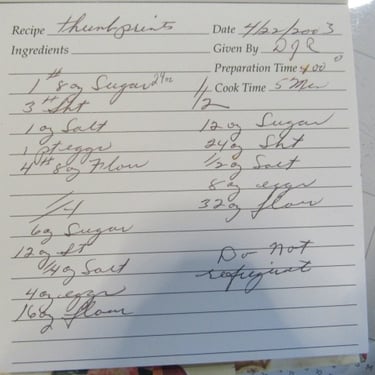 Recipe thumbprints
Date 4/22/2003
Ingredients
Given By DJR
Preparation Time 400°
Cook Time 5 Min
1# 8oz Sugar 24oz
3# Sht
1oz Salt
1 pt eggs
4# 8oz Flour
1/2
12oz Sugar
24oz Sht
1/2oz Salt
8oz eggs
32oz flour
1/4
6oz Sugar
12oz
1/4oz Salt
4oz eggs
16oz flour
Do Not